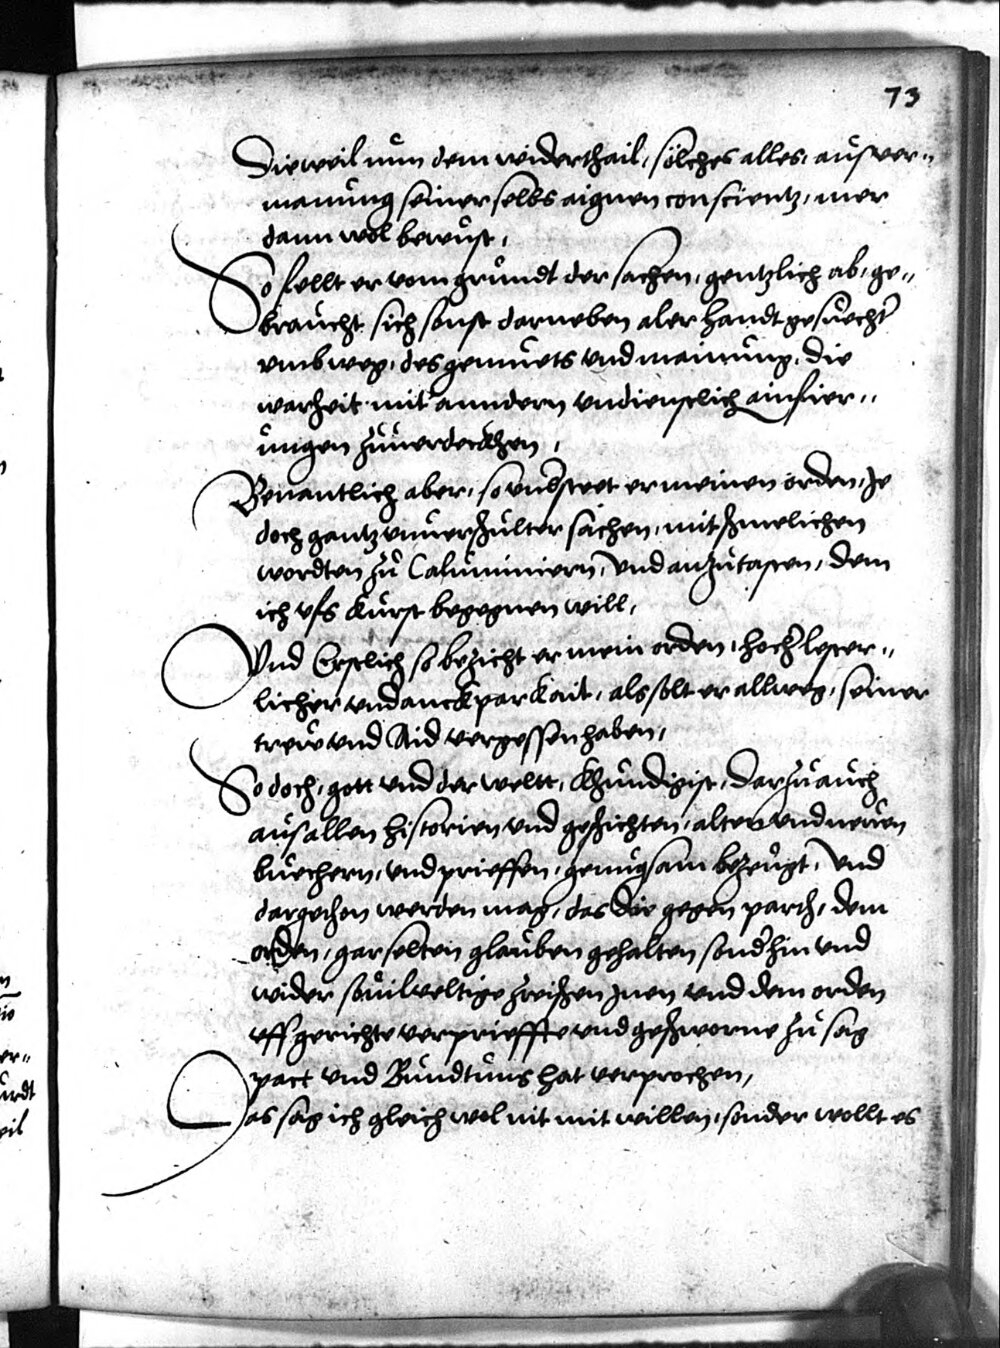 73
Dieweil nun dem widerthail, sölches alles, aus ver„
manung seiner selbs aignen conscientz, mer
dann wol bewust,
So fellt er vom grundt der sachen, gentzlich ab, ge„
braucht sich sonst darneben aler handt gesuechter
umbweg, des gemuets und mainung, die
warheit mit anndern undienstlich einfier„
ungen zuuerdeckhen,
Benantlich aber, so understeet er meinen orden, Je
doch gantz unuerschulter sachen, mit schmelichen
wordten zu Calumniern, und anzutasten, dem
ich ufs kurtzt begegnen will,
Und Erstlich so bezicht er mein orden, hochlester„
licher undanckparkait, als solt er allweg, seiner
trew und Aid vergessen haben,
So doch, gott und der weltt, khundig ist, darzu auch
aus allen historien und geschichten, alten und neuen
buechern, und prieffen, genugsam bezeugt, und
dargethon werden mag, das die gegen parth, dem
orden, gar selten glauben gehalten sonder hin und
wider souil veltige zwischen Jnen und dem orden
uffgerichte verprieffte und geschworne zu sag
pact und Bundtnus hat verprochen,
Das sag ich gleich wol nit mit willen, sonder wollt es